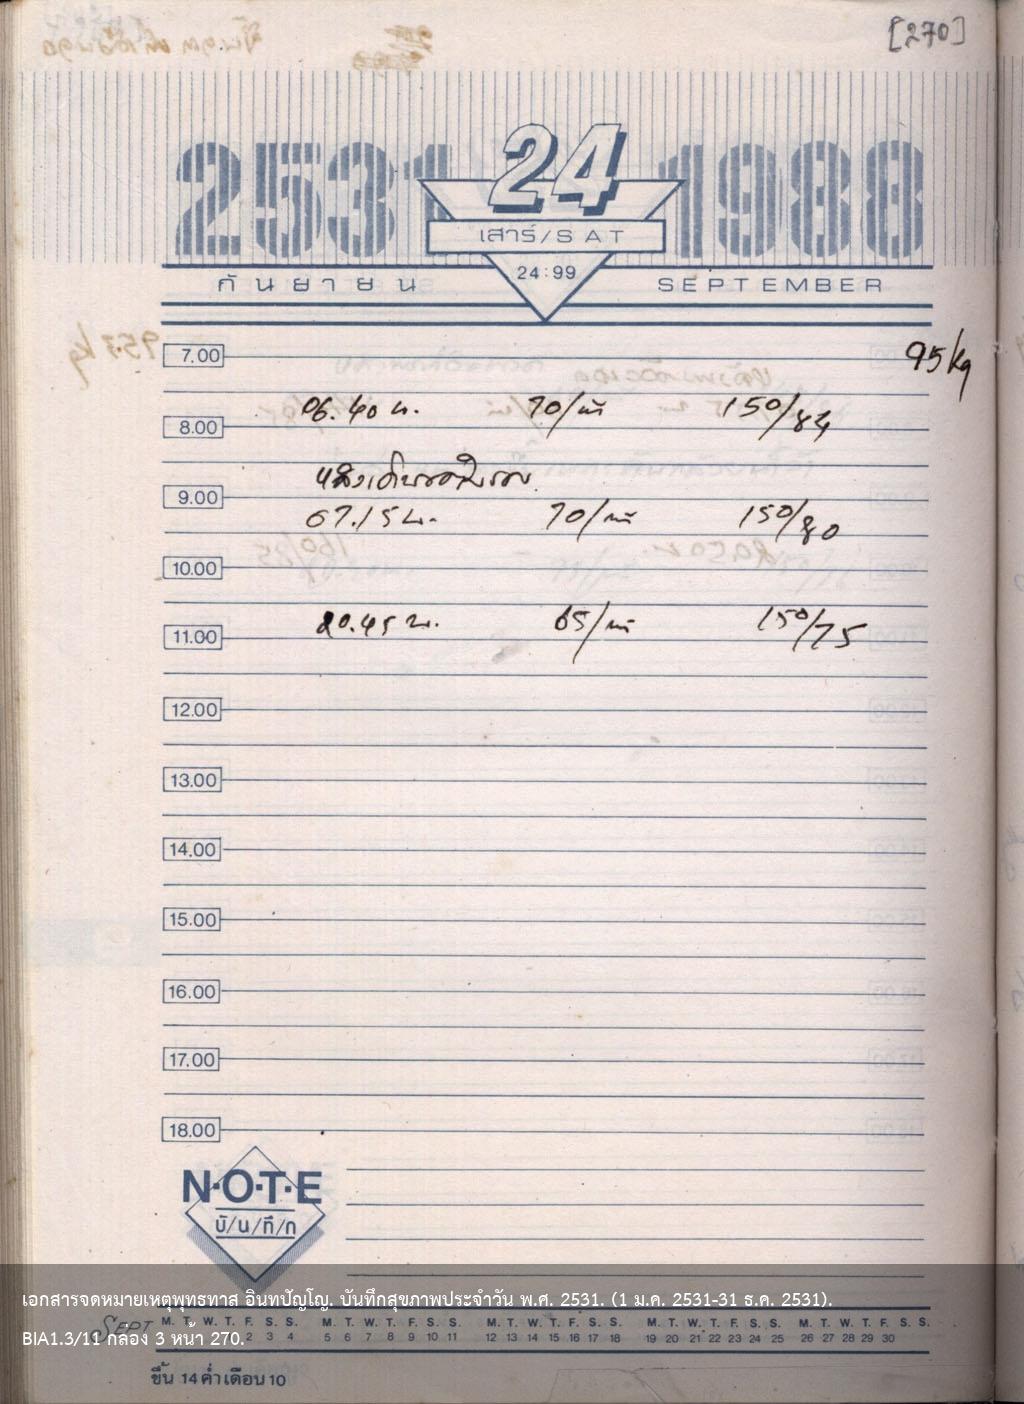 [270]
2531 24 1988
เสาร์/SAT
24:99
กันยายน SEPTEMBER
7.00 95 kg
06.40 น. 70/นาที 150/84
8.00
หลังเดินออก
9.00
07.15 น. 70/นาที 150/80
10.00
20.45 น. 65/นาที 150/75
11.00
12.00
13.00
14.00
15.00
16.00
17.00
18.00
N·O·T·E
บั/น/ทึ/ก
เอกสารจดหมายเหตุพุทธทาส อินทปัญโญ. บันทึกสุขภาพประจำวัน พ.ศ. 2531. (1 ม.ค. 2531-31 ธ.ค. 2531).
SEPT M. T. W. T. F. S. S. M. T. W. T. F. S. S. M. T. W. T. F. S. S. M. T. W. T. F. S. S. M. T. W. T. F. S. S.
BIA1.3/11 กล่อง 3 หน้า 270. 2 3 4 5 6 7 8 9 10 11 12 13 14 15 16 17 18 19 20 21 22 23 24 25 26 27 28 29 30
ขึ้น 14 ค่ำ เดือน 10